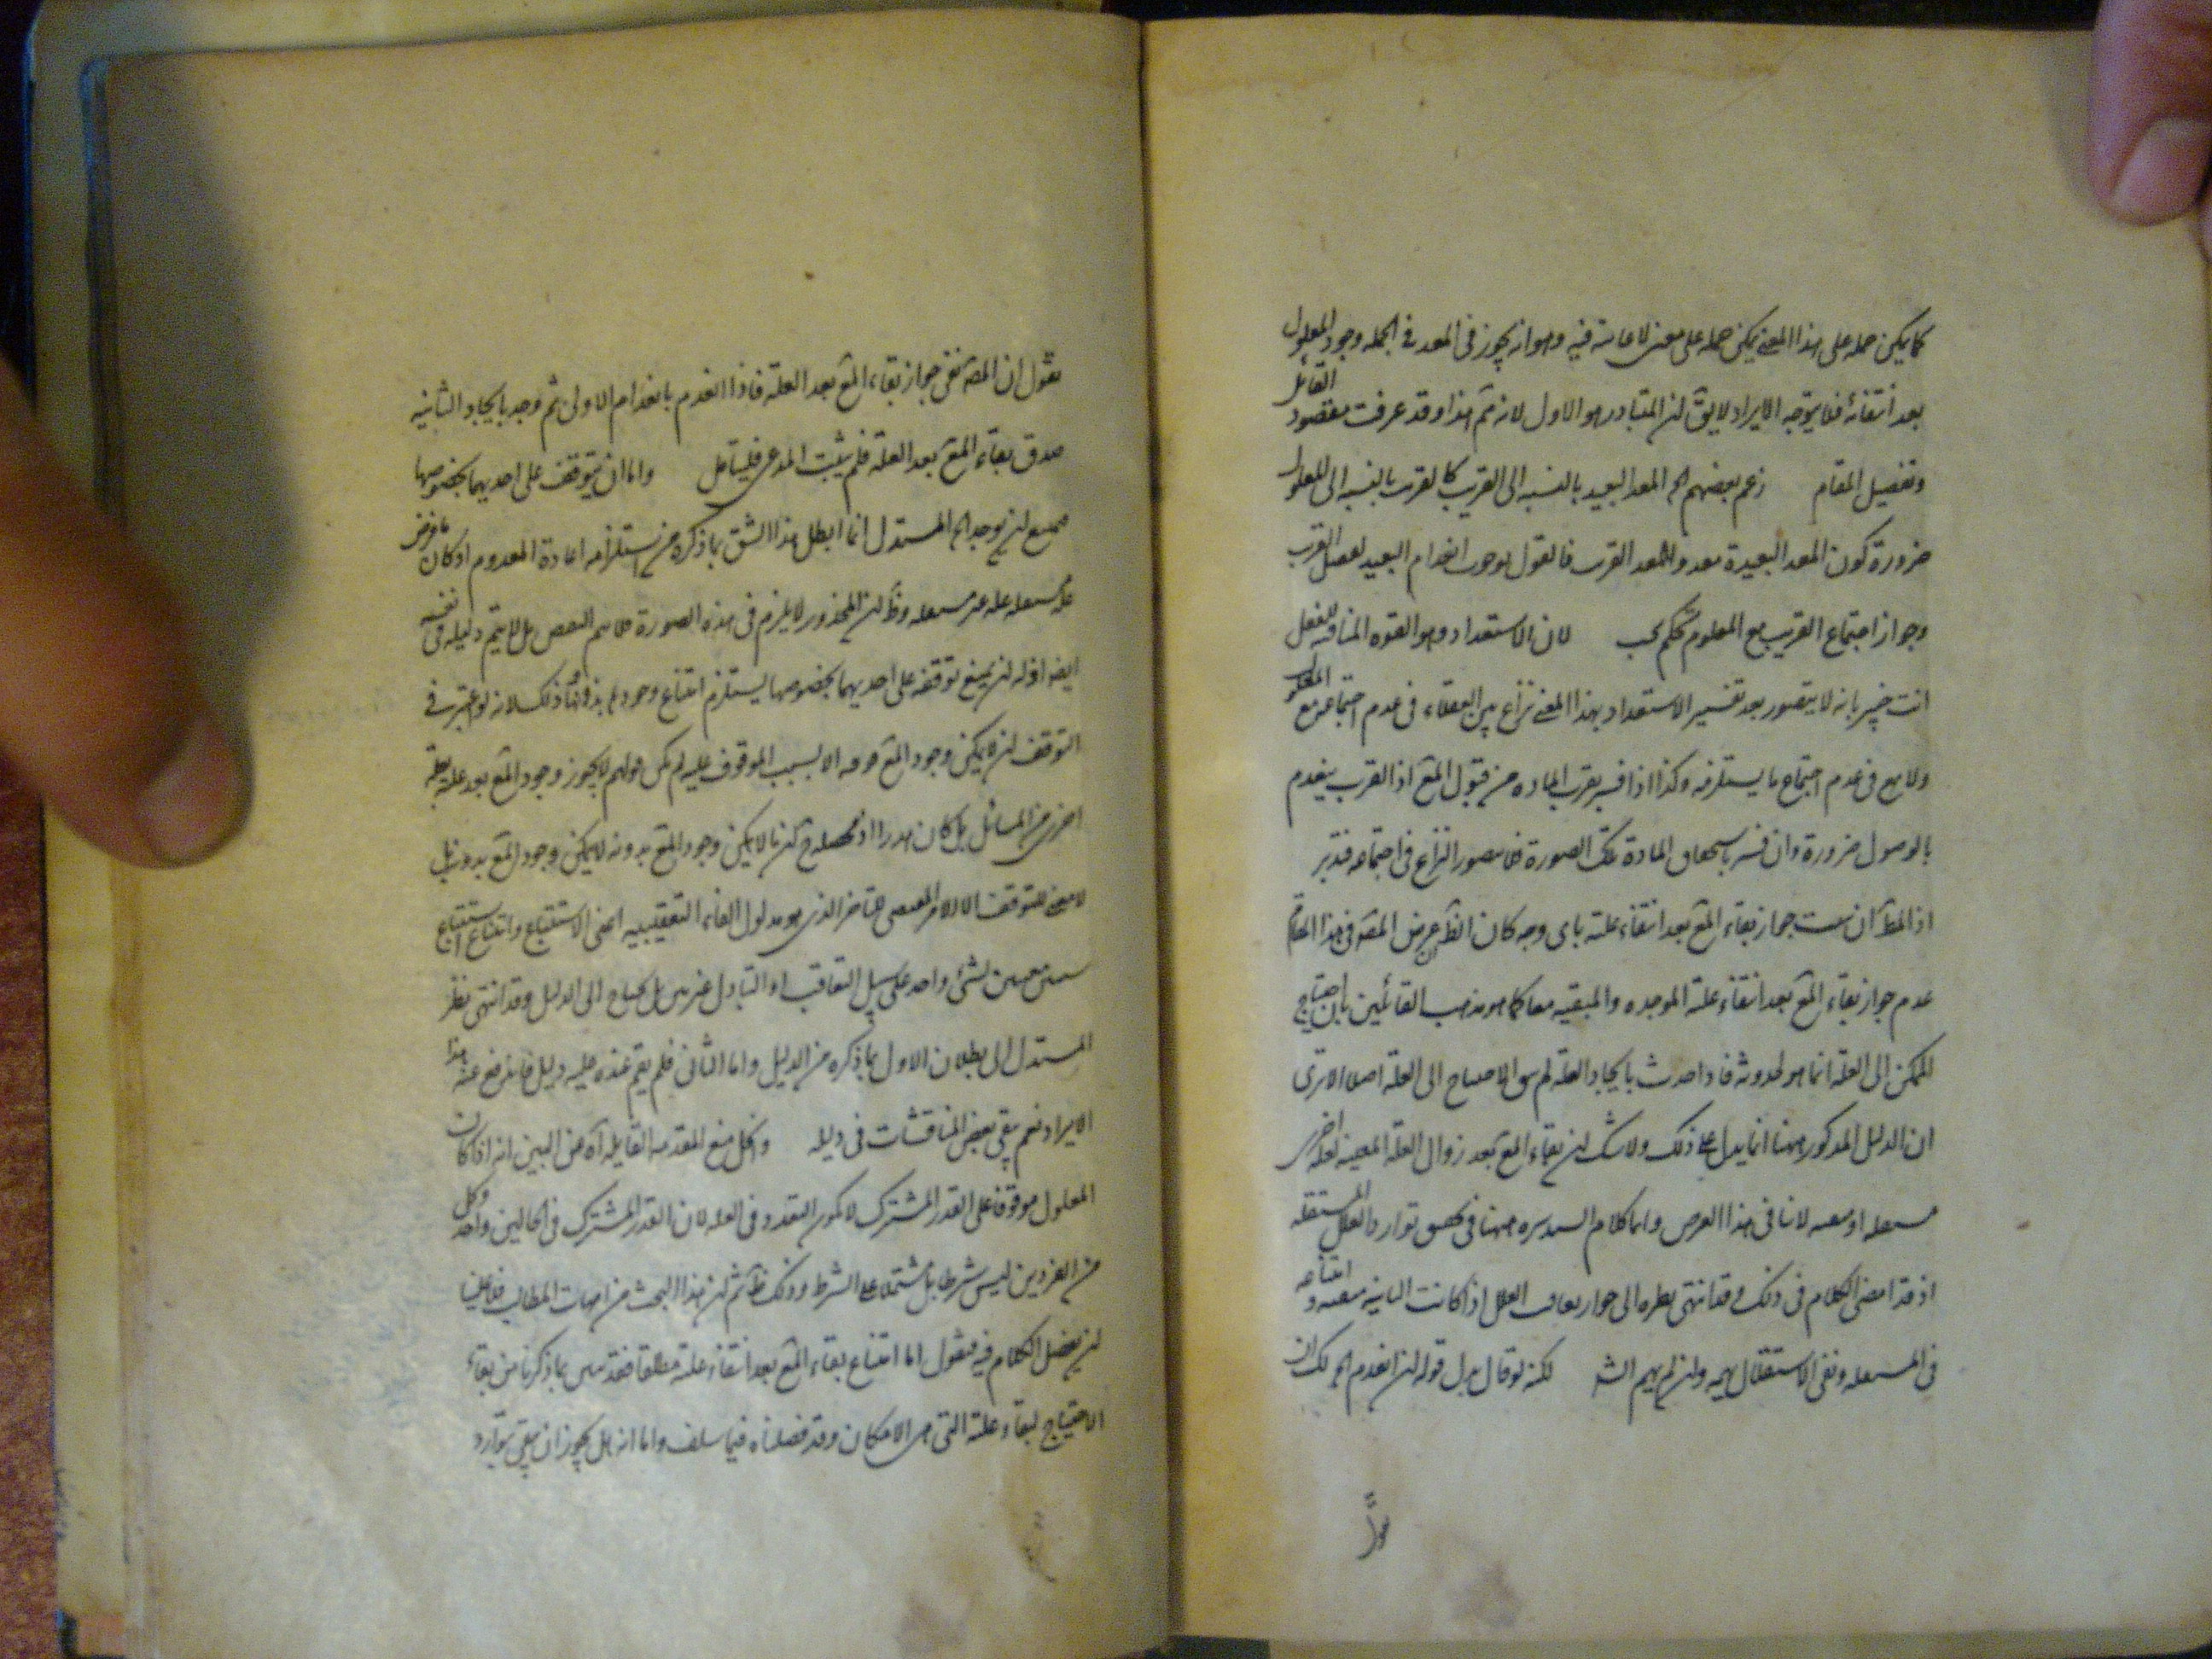 كما يمكن حمله على هذا المعنى يمكن حمله على معنى لا غاية فيه وهو انه يجوز فى المعد فى الجمله وجود المعلول
بعد انتفائه فلا يتوجه الايراد لا يق ان المتبادر هو الاول لانه ثم هذا وقد عرفت مقصود القائل
وتفصيل المقام زعم بعضهم اه المعد البعيد بالنسبه الى القريب كالقرب بالنسبه الى المعلول
ضرورة كون المعد البعيدة معد والمعد القرب فالقول بوجوب انعدام البعيد القرب
وجواز اجتماع القريب مع المعلوم تحكم لان الاستعداد وهو القوه المنافيه للفعل
انت خبير بانه لا يتصور بعد تفسير الاستعداد بهذا المعنى نزاع بين العقلاء فى عدم اجتماعه مع المعلول
ولا مع فى عدم اجتماع ما يستلزمه وكذا اذا فسر بقرب الماده من قبول المع اذ القرب ينعدم
بالوصول ضرورة وان فسر باستحقاق المادة تلك الصورة فلا يتصور النزاع فى اجتماعه فتدبر
اذ المط ان جواز بقاء المع بعد انتفاء علته باى وجه كان الظ غرض المصه فى هذا المقام
عدم جواز بقاء المع بعد انتفاء علته الموجده والمبقيه معا كما هو مذهب القائلين بان احتياج
الممكن الى العلة انما هو لحدوثه فاذا حدث بايجاد العلة لم يبق الاحتياج الى العلة اصلا الا ترى
ان الدليل المذكور ههنا انما يدل على ذلك ولا شك ان بقاء المع بعد زوال العلة المعينه لعلة اخرى
مستقله او لا ينافى هذا الغرض واما كلام السيد سره ههنا فى توارد العلل المستقله
اذ قد امضى الكلام فى ذلك وقد انتهى نظره الى جواز تعاقب العلل اذا كانت الثانيه مبقيه وامتناعه
فى المستقله ونفى الاستقلال وان لم يهم الش لكنه لو قال بدل قوله ان انعدم اه لكان
نقول ان المصه نفى جواز بقاء المع بعد العلة فاذا انعدم بانعدام الاولى ثم وجد بايجاد الثانيه
صدق بقاء المع بعد العلة فلم يثبت المدعى فليتامل واما ان يتوقف على احديهما بخصوصها
ان يوجد اه المستدل انما ابطل هذا الشق بما ذكره من استلزامه اعادة المعدوم او كان ما فرض
علة مستقله علة غير مستقله وظ ان المحذور لا يلزم فى هذه الصورة بل لا يتم دليله فى نفسه
ايضا قوله ان يمنع توقفه على احديهما بخصوصها يستلزم امتناع وجوده بدونها وذلك لانه لو اعتبر فى
التوقف ان لا يمكن وجود المع الا بسبب الموقوف عليه لم يكن قولهم لا يجوز وجود المع بعد علة بعلة
اخرى من المسائل بل كان هدرا اذ محصله ح ان ما لا يمكن وجود المع بدونه لا يمكن وجود المع بدونه بل
لا معنى للتوقف الا الامر الذى هو مدلول الفاء التعقيبيه اعنى الاستتباع وامتناع استتباع
لشئ واحد على سبيل التعاقب او التبادل غير بين بل يحتاج الى الدليل وقد انتهى نظر
المستدل الى بطلان الاول بما ذكره من الدليل واما الثانى فلم يقم عنده عليه دليل فاندفع عنه هذا
الايراد نعم بقى بعض المناقشات فى دليله والكل منع المقدمه القايله اه من البين انه اذا كان
المعلول موقوفا على القدر المشترك لا يكون التعدد فى العلة لان القدر المشترك فى الحالين واحد وكل
من الفردين ليس شرطا بل مشتملا على الشرط وذلك ظ ثم ان هذا البحث من امهات المطالب فلا علينا
ان نفصل الكلام فيه فنقول اما امتناع بقاء المع بعد انتفاء علته مطلقا فقد تبين بما ذكرنا من بقاء
الاحتياج لبقاء علته التى هى الامكان وقد فصلناه فيما سلف واما انه هل يجوز ان يبقى بتوارد